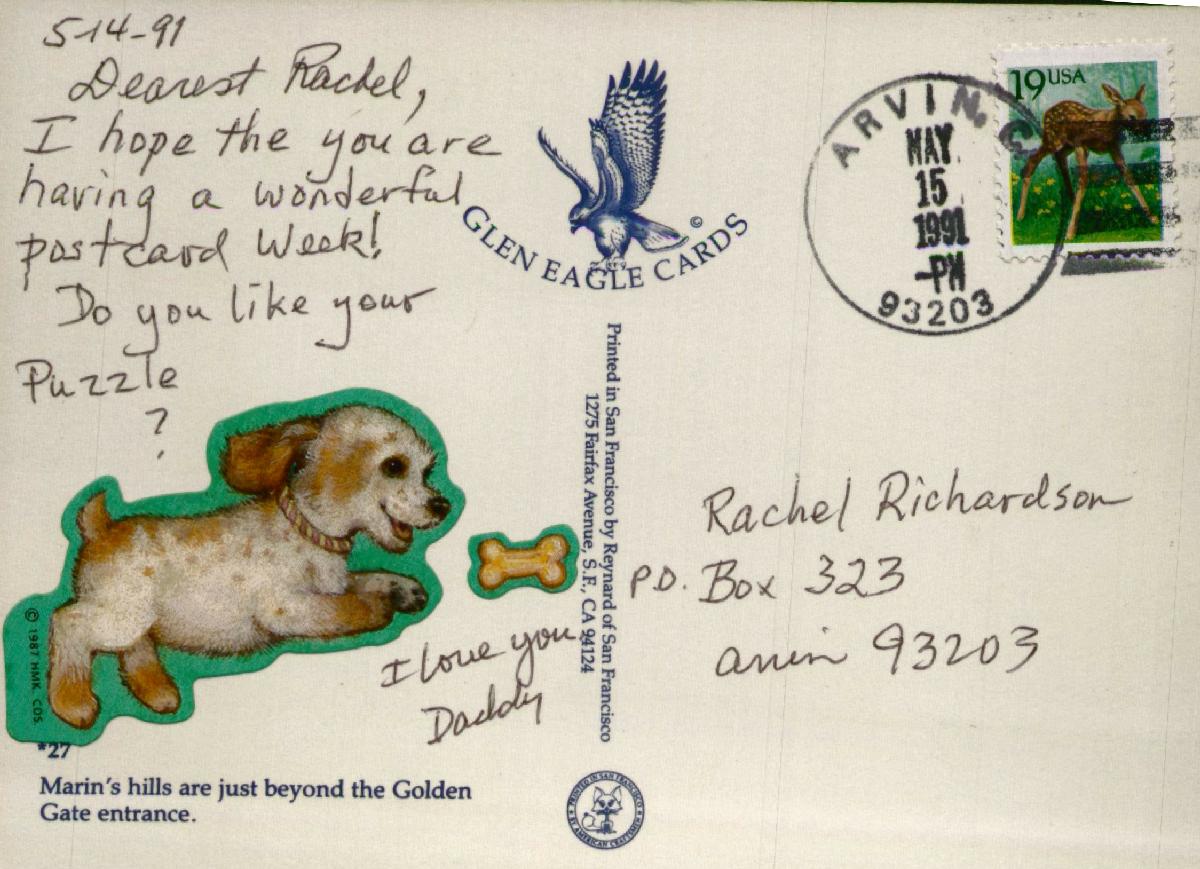 5-14-91
Dearest Rachel,
I hope the you are
having a wonderful
postcard Week!
Do you like your
Puzzle
?
I love you
Daddy
© 1987 HMK. COS.
*27
Marin's hills are just beyond the Golden
Gate entrance.
©
GLEN EAGLE CARDS
Printed in San Francisco by Reynard of San Francisco
1275 Fairfax Avenue, S.F., CA 94124
PRINTED IN SAN FRANCISCO
BY AMERICAN CRAFTSMEN
ARVIN, C
MAY
15
1991
-PM
93203
19 USA
Rachel Richardson
P.O. Box 323
Arvin 93203